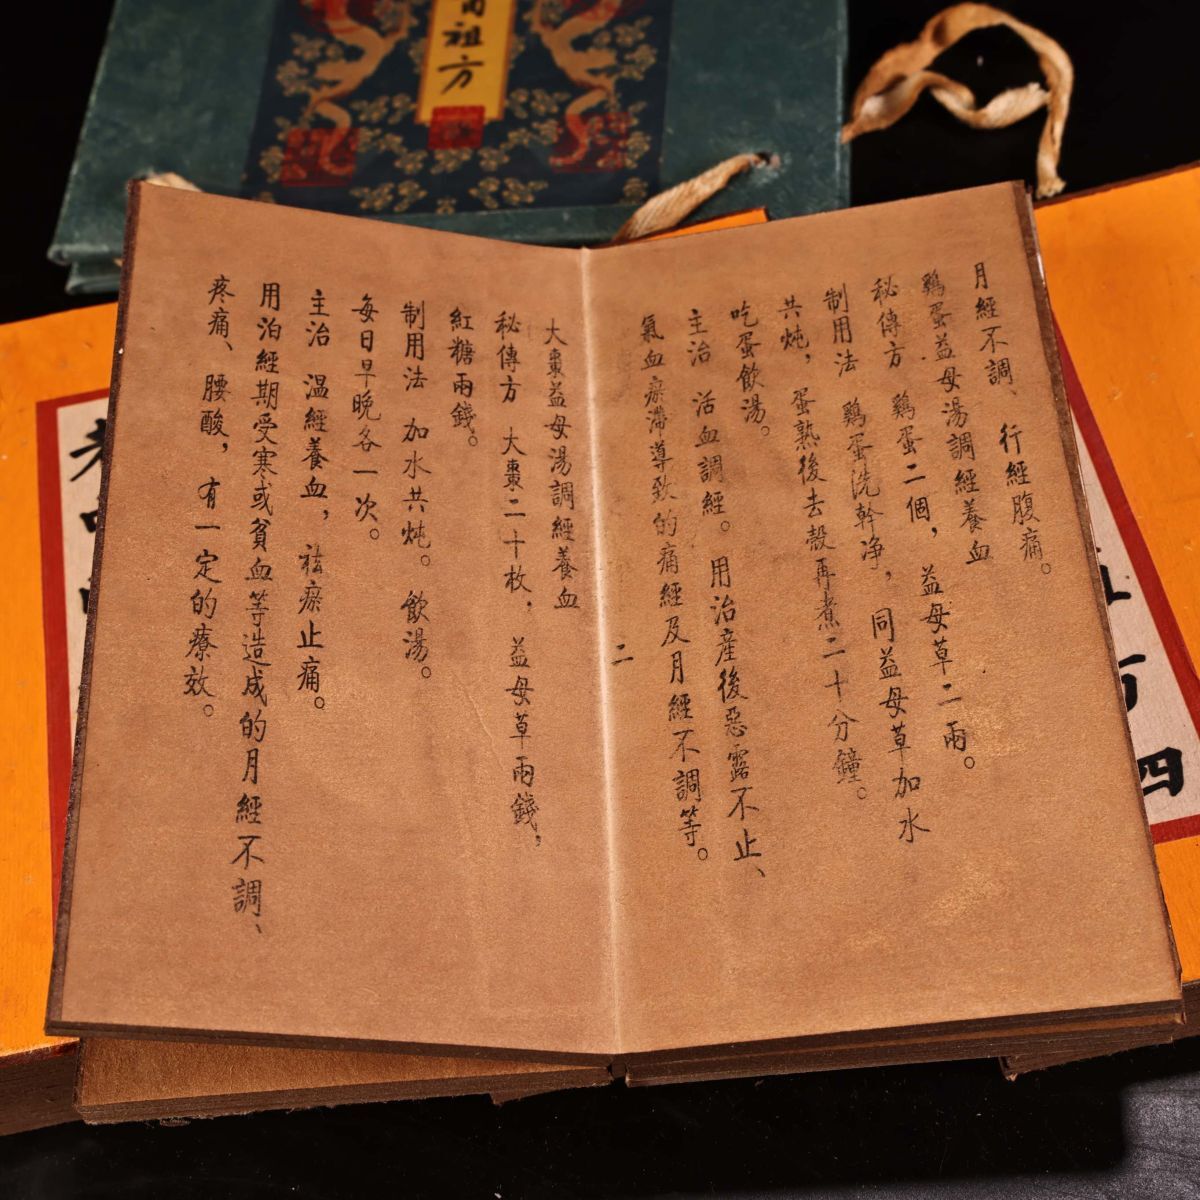 月經不調、行經腹痛。
鷄蛋益母湯調經養血
秘傳方 鷄蛋二個，益母草二兩。
制用法 鷄蛋洗幹净，同益母草加水
共炖，蛋熟後去殼再煮二十分鐘。
吃蛋飲湯。
主治 活血調經。用治産後惡露不止、
氣血瘀滯導致的痛經及月經不調等。
二
大棗益母湯調經養血
秘傳方 大棗二十枚，益母草兩錢，
紅糖兩錢。
制用法 加水共炖。飲湯。
每日早晚各一次。
主治 温經養血，祛瘀止痛。
用泊經期受寒或貧血等造成的月經不調、
疼痛、腰酸，有一定的療效。
祖方
四